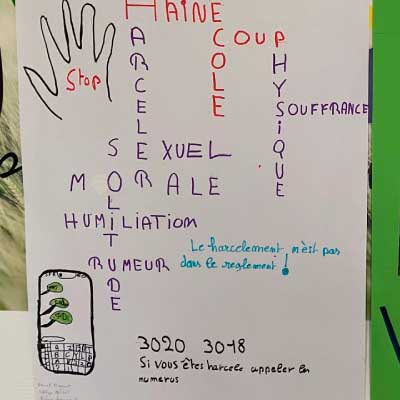 HAINE
HARCELER
ECOLE
COUP
PHYSIQUE
Stop
SOUFFRANCE
SEXUEL
SOLITUDE
MORALE
HUMILIATION
RUMEUR
Le harcelement n'est pas
dans le reglement !
3020 3018
Si vous êtes harcele appeler les
numerus